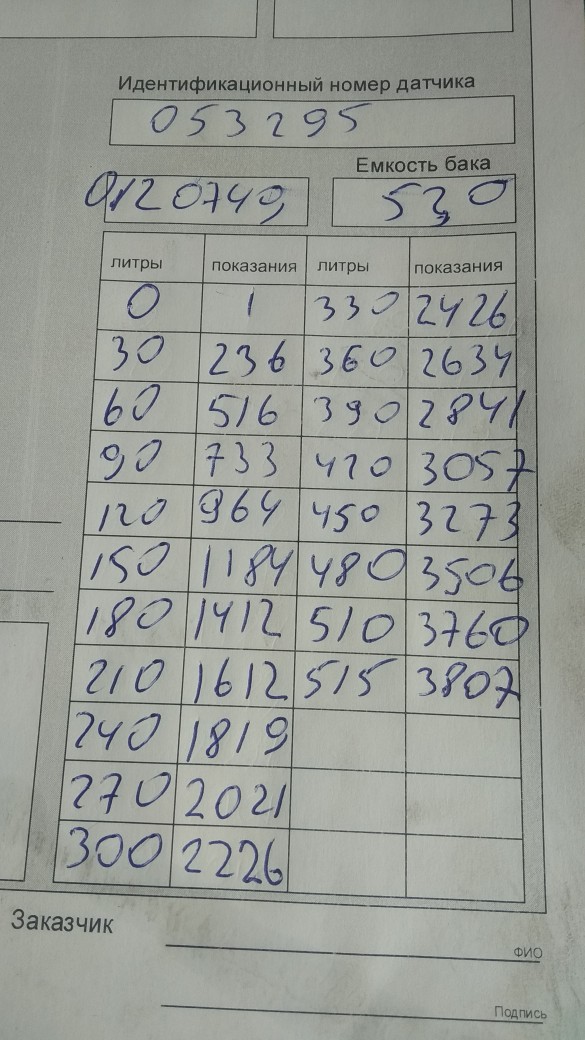 Идентификационный номер датчика
053295
Емкость бака
0120749 530
литры показания литры показания
0 1 330 2426
30 236 360 2634
60 516 390 2841
90 733 420 3057
120 964 450 3273
150 1184 480 3506
180 1412 510 3760
210 1612 515 3807
240 1819
270 2021
300 2226
Заказчик
ФИО
Подпись